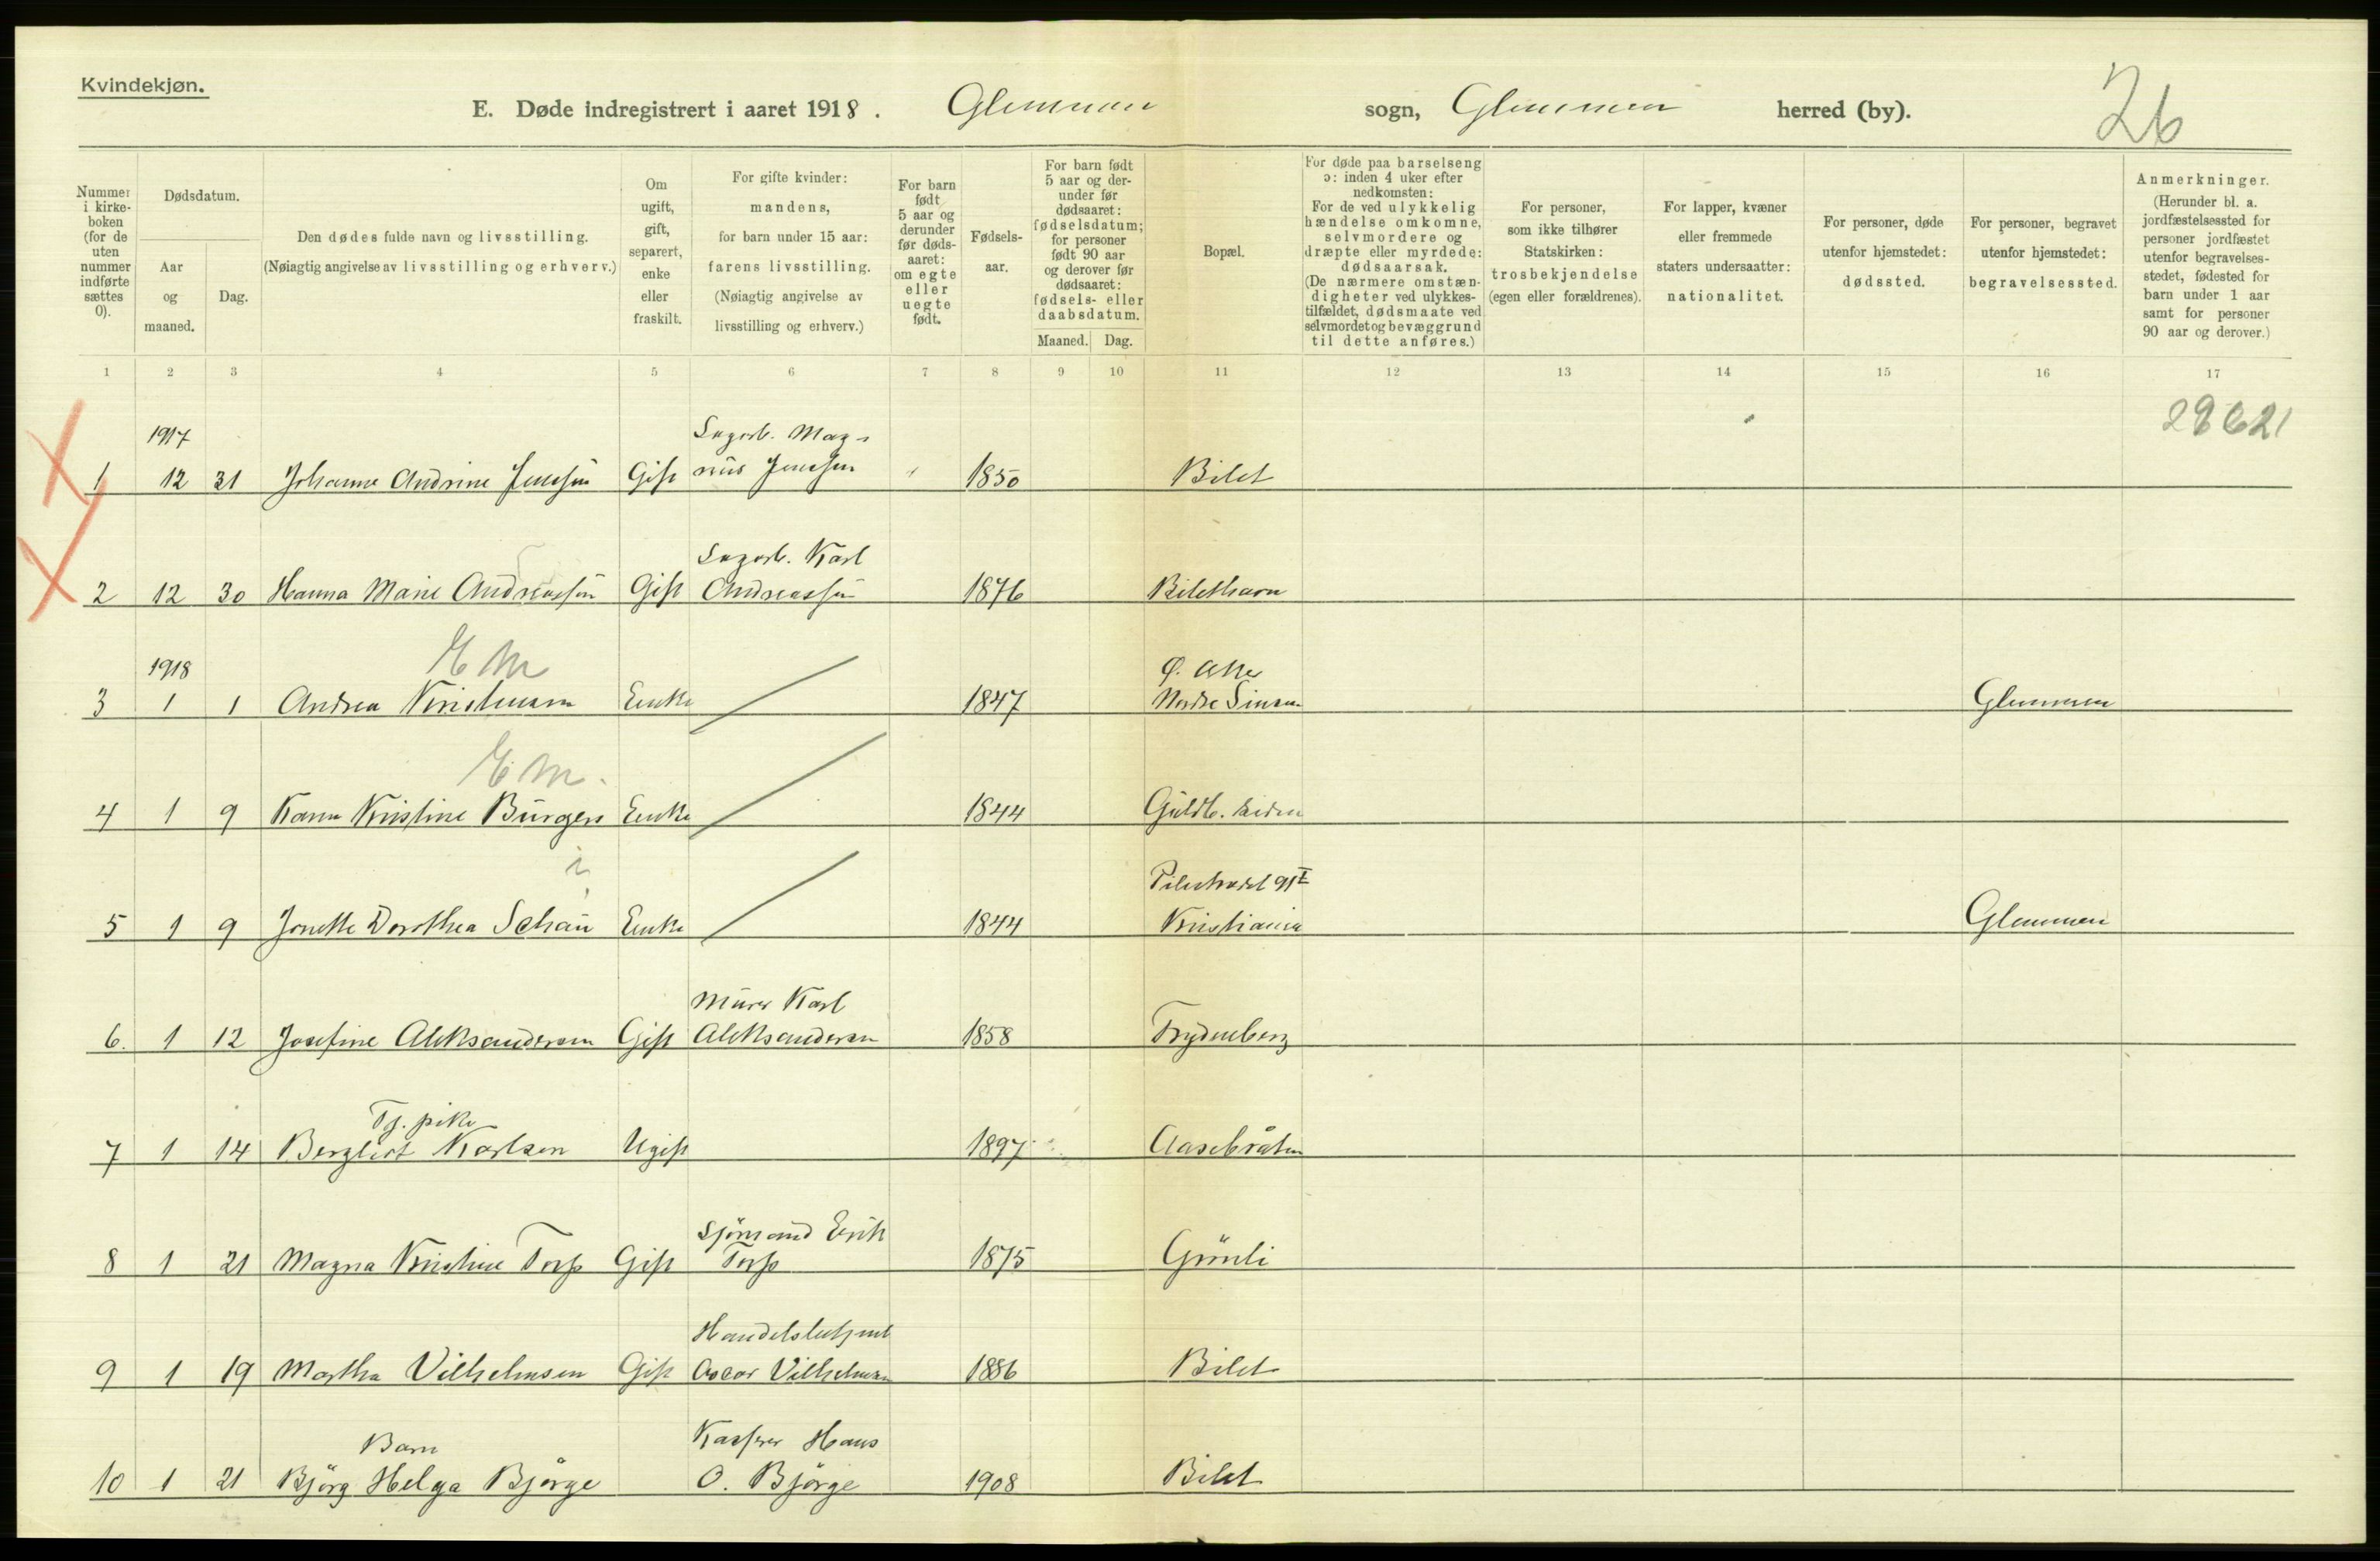 Kvindekjøn.
E. Døde indregistrert i aaret 1918. Glemmen sogn, Glemmen herred (by).
26
Nummer i kirke-boken (for de uten nummer indførte sættes 0).
Dødsdatum.
Aar og maaned.
Dag.
Den dødes fulde navn og livsstilling.
(Nøiagtig angivelse av livsstilling og erhverv.)
Om ugift, gift, separert, enke eller fraskilt.
For gifte kvinder: mandens, for barn under 15 aar: farens livsstilling. (Nøiagtig angivelse av livsstilling og erhverv.)
For barn født 5 aar og derunder før døds-aaret: om egte eller uegte født.
Fødsels-aar.
For barn født 5 aar og der-under før dødsaaret: fødselsdatum; for personer født 90 aar og derover før dødsaaret: fødsels- eller daabsdatum.
Maaned. Dag.
Bopæl.
For døde paa barselseng ɔ: inden 4 uker efter nedkomsten: For de ved ulykkelig hændelse omkomne, selvmordere og dræpte eller myrdede: dødsaarsak. (De nærmere omstæn-digheter ved ulykkes-tilfældet, dødsmaate ved selvmordet og bevæggrund til dette anføres.)
For personer, som ikke tilhører Statskirken: trosbekjendelse (egen eller forældrenes).
For lapper, kvæner eller fremmede staters undersaatter: nationalitet.
For personer, døde utenfor hjemstedet: dødssted.
For personer, begravet utenfor hjemstedet: begravelsessted.
Anmerkninger. (Herunder bl. a. jordfæstelsessted for personer jordfæstet utenfor begravelses-stedet, fødested for barn under 1 aar samt for personer 90 aar og derover.)
1 2 3 4 5 6 7 8 9 10 11 12 13 14 15 16 17
28621
1917 Sagarb. Mag-
1 12 31 Johanne Andrine Jenssen Gift nus Jenssen 1850 Bilet
Sagarb. Karl
2 12 30 Hanna Marie Andreassen Gift Andreassen 1876 Bilethavn
1918 E M
3 1 1 Andrea Kristensen Enke 1847 Nordre Glemmen
E M.
4 1 9 Karen Kristine Bürgers Enke 1844 Guldb.
Pilestrædet 91 I
5 1 9 Jonette Dorothea Schau Enke 1844 Kristiania Glemmen
Murer Karl
6. 1 12 Josefine Aleksandersen Gift Aleksandersen 1858 Trydenberg
Tj. pike
7 1 14 Bergliot Karlsen Ugift 1897 Aasebråten
Sjömand Erik
8 1 21 Magna Kristine Torp Gift Torp 1875 Grönli
Handelsbetjent
9 1 19 Martha Vilhelmsen Gift Oscar Vilhelmsen 1886 Bilet
Barn Kasserer Hans
10 1 21 Björg Helga Bjørge O. Bjørge 1908 Bilet